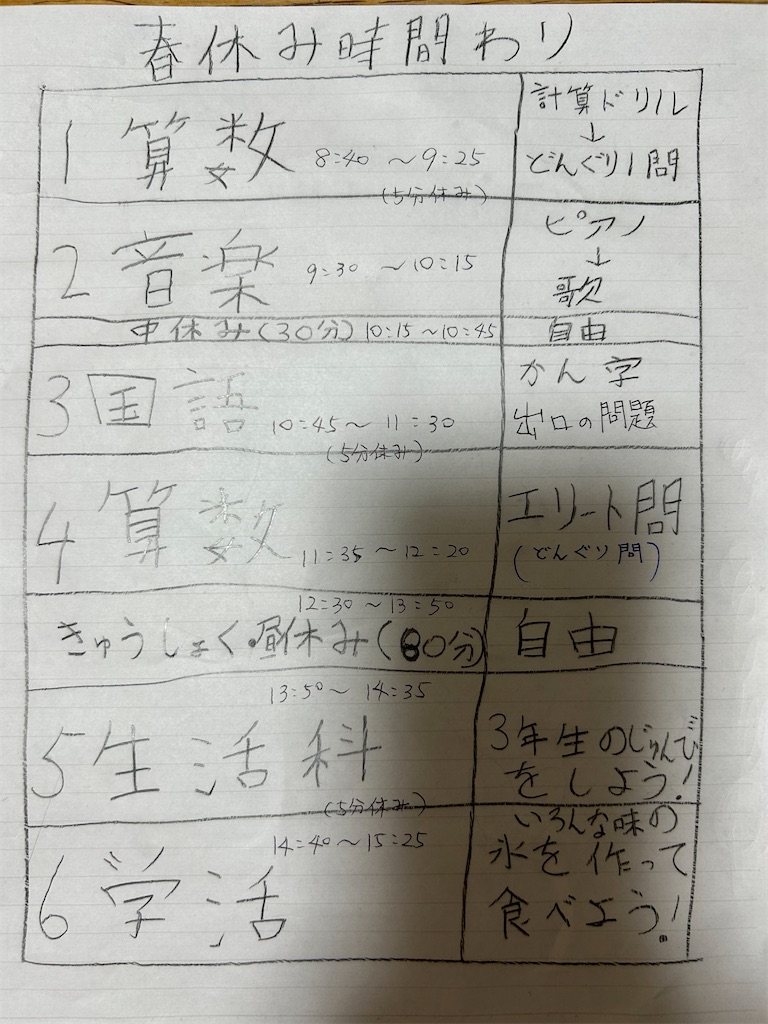 春休み時間わり
1 算数 8:40 ~9:25
(5分休み)
計算ドリル
↓
どんぐり1問
2 音楽 9:30 ~10:15
ピアノ
↓
歌
中休み(30分) 10:15~10:45
自由
3 国語 10:45~ 11:30
(5分休み)
かん字
出口の問題
4 算数 11:35 ~12:20
エリート問
(どんぐり問)
12:30~13:50
きゅうしょく・昼休み(80分)
自由
13:50~ 14:35
5 生活科
(5分休み)
3年生のじゅんび
をしよう!
14:40~15:25
6 学活
いろんな味の
氷を作って
食べよう!